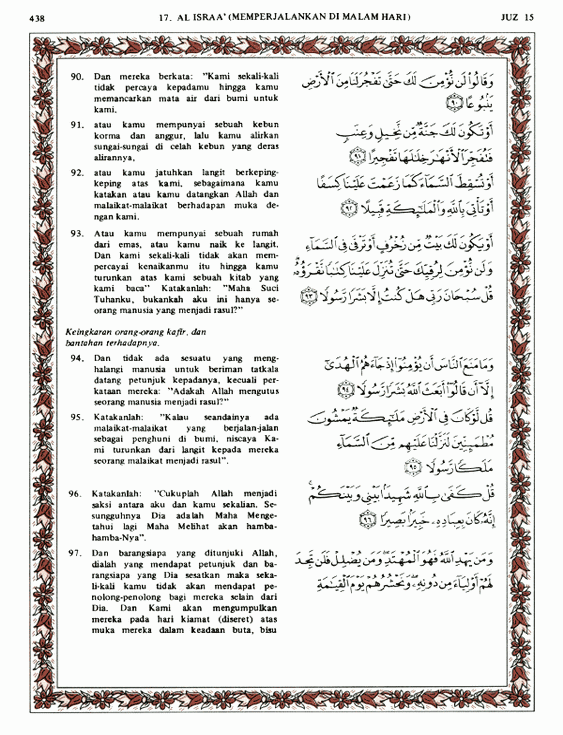 438
17. AL ISRAA' (MEMPERJALANKAN DI MALAM HARI)
JUZ 15
90. Dan mereka berkata: "Kami sekali-kali
tidak percaya kepadamu hingga kamu
memancarkan mata air dari bumi untuk
kami.
وَقَالُوا لَن نُّؤْمِنَ لَكَ حَتَّىٰ تَفْجُرَ لَنَا مِنَ الْأَرْضِ
يَنبُوعًا ٩٠
91. atau kamu mempunyai sebuah kebun
korma dan anggur, lalu kamu alirkan
sungai-sungai di celah kebun yang deras
alirannya,
أَوْ تَكُونَ لَكَ جَنَّةٌ مِّن نَّخِيلٍ وَعِنَبٍ
فَتُفَجِّرَ الْأَنْهَارَ خِلَالَهَا تَفْجِيرًا ٩١
92. atau kamu jatuhkan langit berkeping-
keping atas kami, sebagaimana kamu
katakan atau kamu datangkan Allah dan
malaikat-malaikat berhadapan muka de-
ngan kami.
أَوْ تُسْقِطَ السَّمَاءَ كَمَا زَعَمْتَ عَلَيْنَا كِسَفًا
أَوْ تَأْتِيَ بِاللَّهِ وَالْمَلَائِكَةِ قَبِيلًا ٩٢
93. Atau kamu mempunyai sebuah rumah
dari emas, atau kamu naik ke langit.
Dan kami sekali-kali tidak akan mem-
percayai kenaikanmu itu hingga kamu
turunkan atas kami sebuah kitab yang
kami baca" Katakanlah: "Maha Suci
Tuhanku, bukankah aku ini hanya se-
orang manusia yang menjadi rasul?"
أَوْ يَكُونَ لَكَ بَيْتٌ مِّن زُخْرُفٍ أَوْ تَرْقَىٰ فِي السَّمَاءِ
وَلَن نُّؤْمِنَ لِرُقِيِّكَ حَتَّىٰ تُنَزِّلَ عَلَيْنَا كِتَابًا نَّقْرَؤُهُ
قُلْ سُبْحَانَ رَبِّي هَلْ كُنتُ إِلَّا بَشَرًا رَّسُولًا ٩٣
Keingkaran orang-orang kafir, dan
bantahan terhadapnya.
94. Dan tidak ada sesuatu yang meng-
halangi manusia untuk beriman tatkala
datang petunjuk kepadanya, kecuali per-
kataan mereka: "Adakah Allah mengutus
seorang manusia menjadi rasul?"
وَمَا مَنَعَ النَّاسَ أَن يُؤْمِنُوا إِذْ جَاءَهُمُ الْهُدَىٰ
إِلَّا أَن قَالُوا أَبَعَثَ اللَّهُ بَشَرًا رَّسُولًا ٩٤
95. Katakanlah: "Kalau seandainya ada
malaikat-malaikat yang berjalan-jalan
sebagai penghuni di bumi, niscaya Ka-
mi turunkan dari langit kepada mereka
seorang malaikat menjadi rasul".
قُل لَّوْ كَانَ فِي الْأَرْضِ مَلَائِكَةٌ يَمْشُونَ
مُطْمَئِنِّينَ لَنَزَّلْنَا عَلَيْهِم مِّنَ السَّمَاءِ
مَلَكًا رَّسُولًا ٩٥
96. Katakanlah: "Cukuplah Allah menjadi
saksi antara aku dan kamu sekalian. Se-
sungguhnya Dia adalah Maha Menge-
tahui lagi Maha Melihat akan hamba-
hamba-Nya".
قُلْ كَفَىٰ بِاللَّهِ شَهِيدًا بَيْنِي وَبَيْنَكُمْ
إِنَّهُ كَانَ بِعِبَادِهِ خَبِيرًا بَصِيرًا ٩٦
97. Dan barangsiapa yang ditunjuki Allah,
dialah yang mendapat petunjuk dan ba-
rangsiapa yang Dia sesatkan maka seka-
li-kali kamu tidak akan mendapat pe-
nolong-penolong bagi mereka selain dari
Dia. Dan Kami akan mengumpulkan
mereka pada hari kiamat (diseret) atas
muka mereka dalam keadaan buta, bisu
وَمَن يَهْدِ اللَّهُ فَهُوَ الْمُهْتَدِ وَمَن يُضْلِلْ فَلَن تَجِدَ
لَهُمْ أَوْلِيَاءَ مِن دُونِهِ وَنَحْشُرُهُمْ يَوْمَ الْقِيَامَةِ